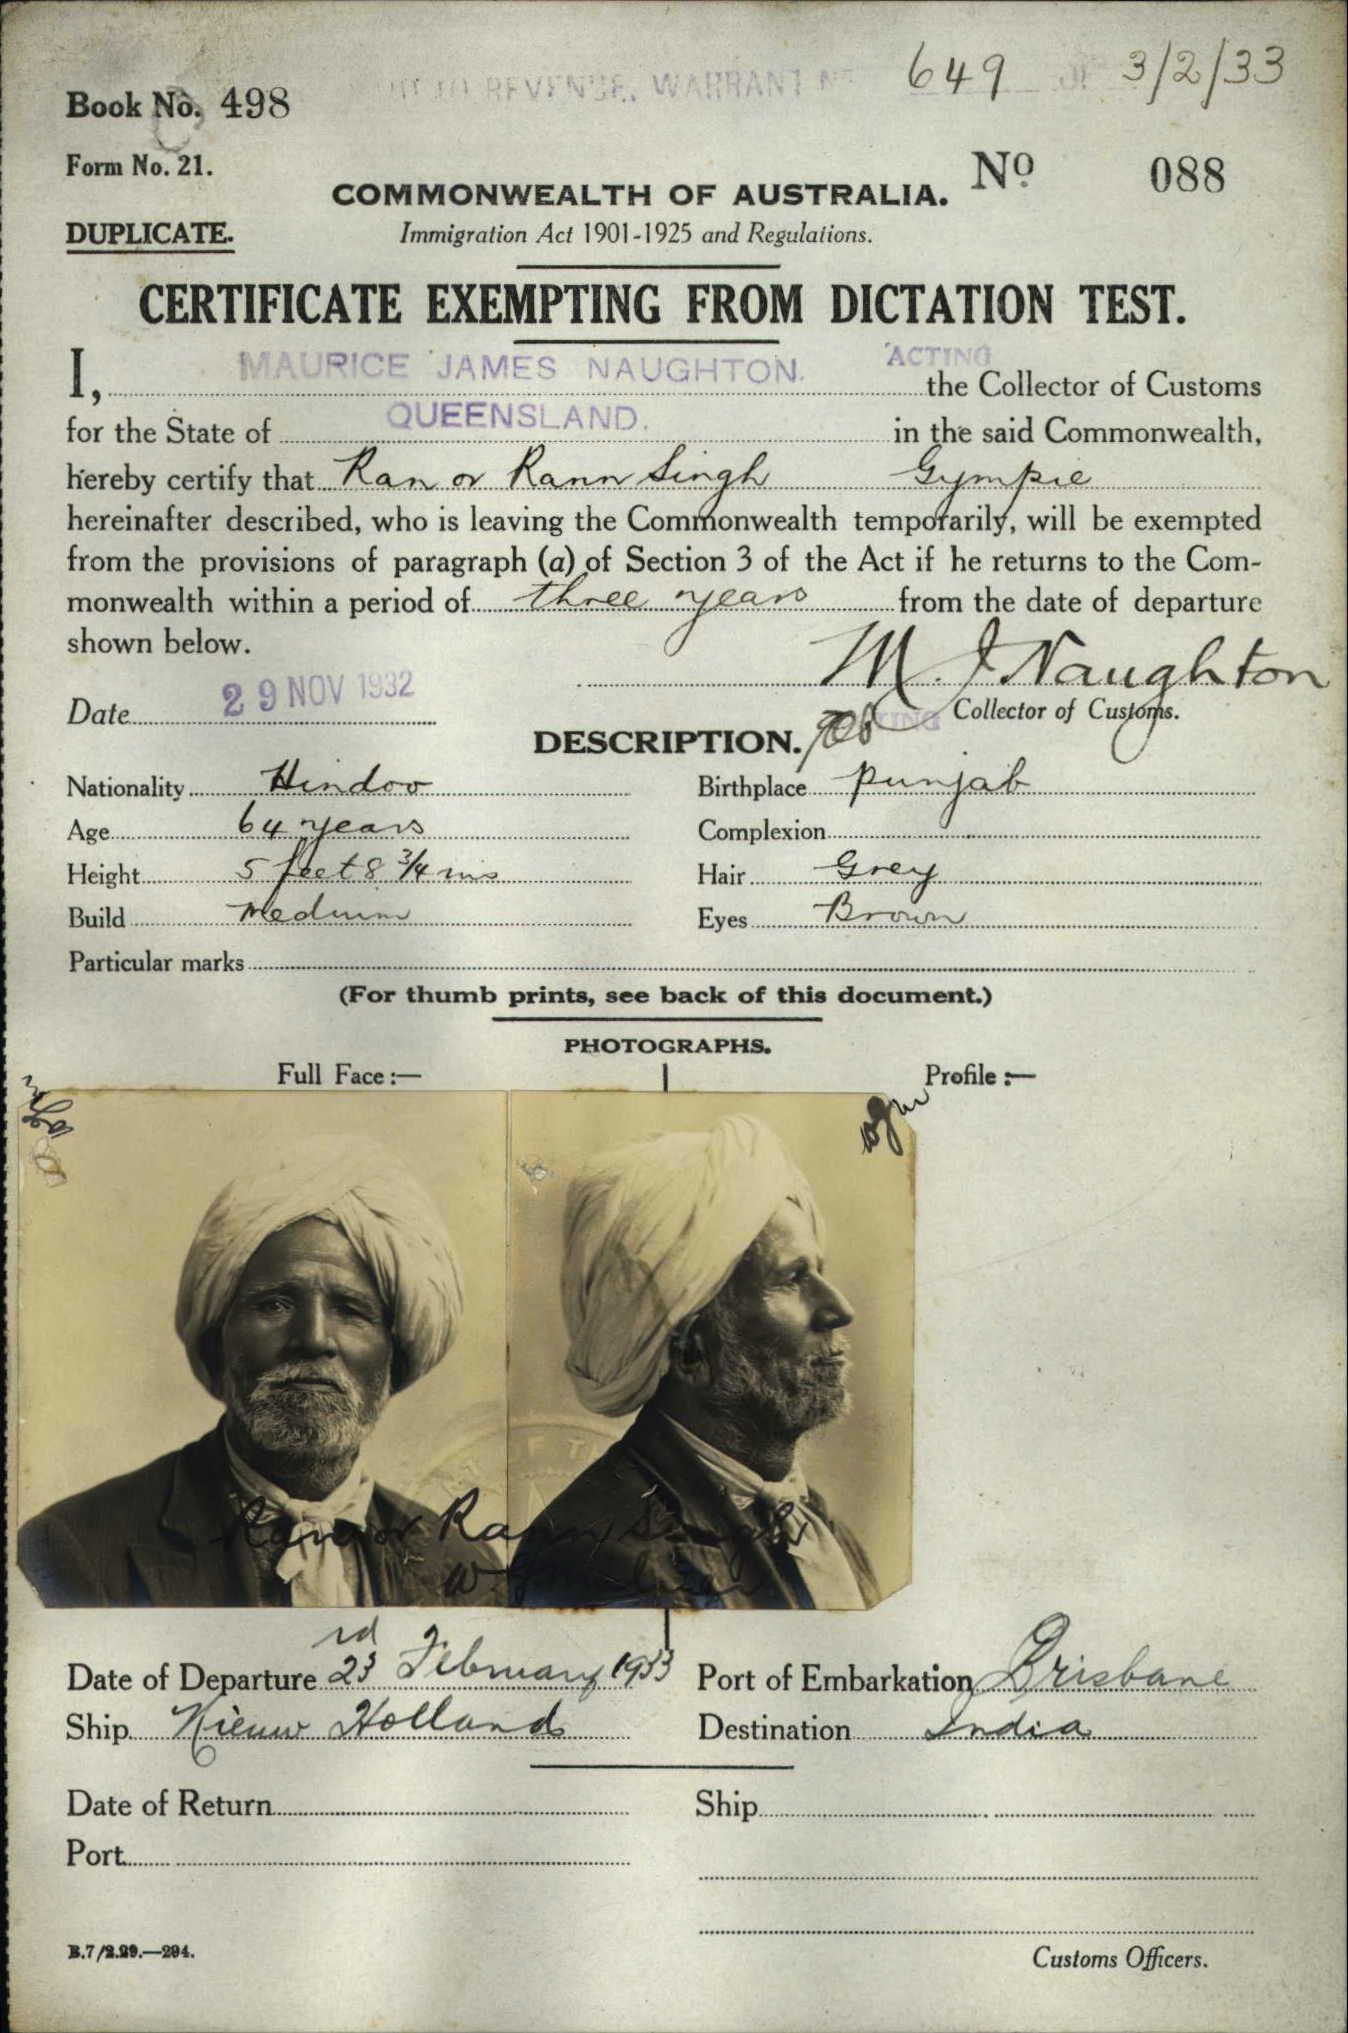 Book No. 498
TO REVENUE, WARRANT No 649 OF 3/2/33
Form No. 21.
No 088
COMMONWEALTH OF AUSTRALIA.
DUPLICATE.
Immigration Act 1901-1925 and Regulations.
CERTIFICATE EXEMPTING FROM DICTATION TEST.
I, MAURICE JAMES NAUGHTON. ACTING the Collector of Customs
for the State of QUEENSLAND. in the said Commonwealth,
hereby certify that Ran or Rann Singh Gympie
hereinafter described, who is leaving the Commonwealth temporarily, will be exempted
from the provisions of paragraph (a) of Section 3 of the Act if he returns to the Com-
monwealth within a period of three years from the date of departure
shown below.
M. J Naughton
Date 29 NOV 1932
ACTING Collector of Customs.
DESCRIPTION.
Nationality Hindoo Birthplace Punjab
Age 64 years Complexion
Height 5 feet 8 3/4 ins Hair Grey
Build Medium Eyes Brown
Particular marks
(For thumb prints, see back of this document.)
PHOTOGRAPHS.
Full Face :— Profile :—
Ran or Rann Singh
Date of Departure 23rd February 1933 Port of Embarkation Brisbane
Ship Nieuw Holland Destination India
Date of Return Ship
Port
B.7/2.29.—294.
Customs Officers.